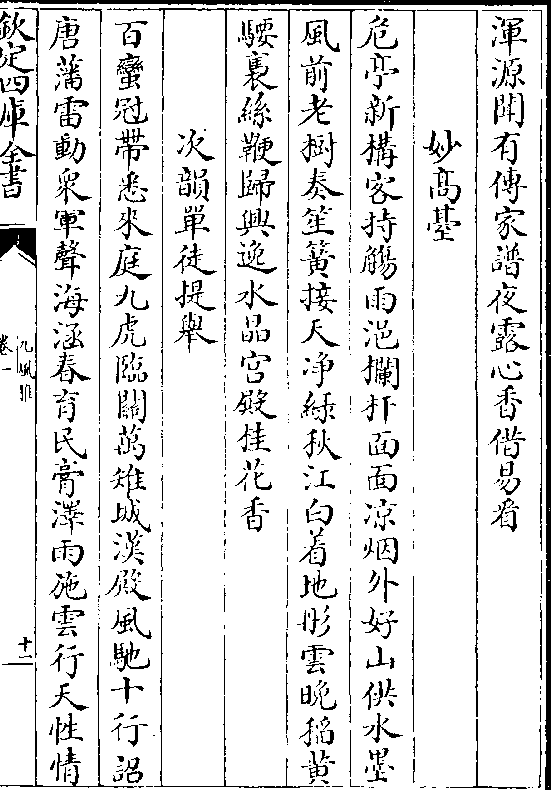 渾源閒有傳家譜夜露心香偕易看
妙髙臺
危亭新構客持觴雨浥攔杆面面凉烟外好山供水墨
風前老樹奏笙簧接天净緑秋江白着地彤雲晚稻黄
騕褭絲鞭歸興逸水晶宫殿桂花香
次韻單徒提舉
百蠻冠帶悉來庭九虎臨關萬雉城漢殿風馳十行詔
唐藩雷動衆軍聲海涵春育民膏澤雨施雲行天性情
欽定四庫全書
卷一
十一